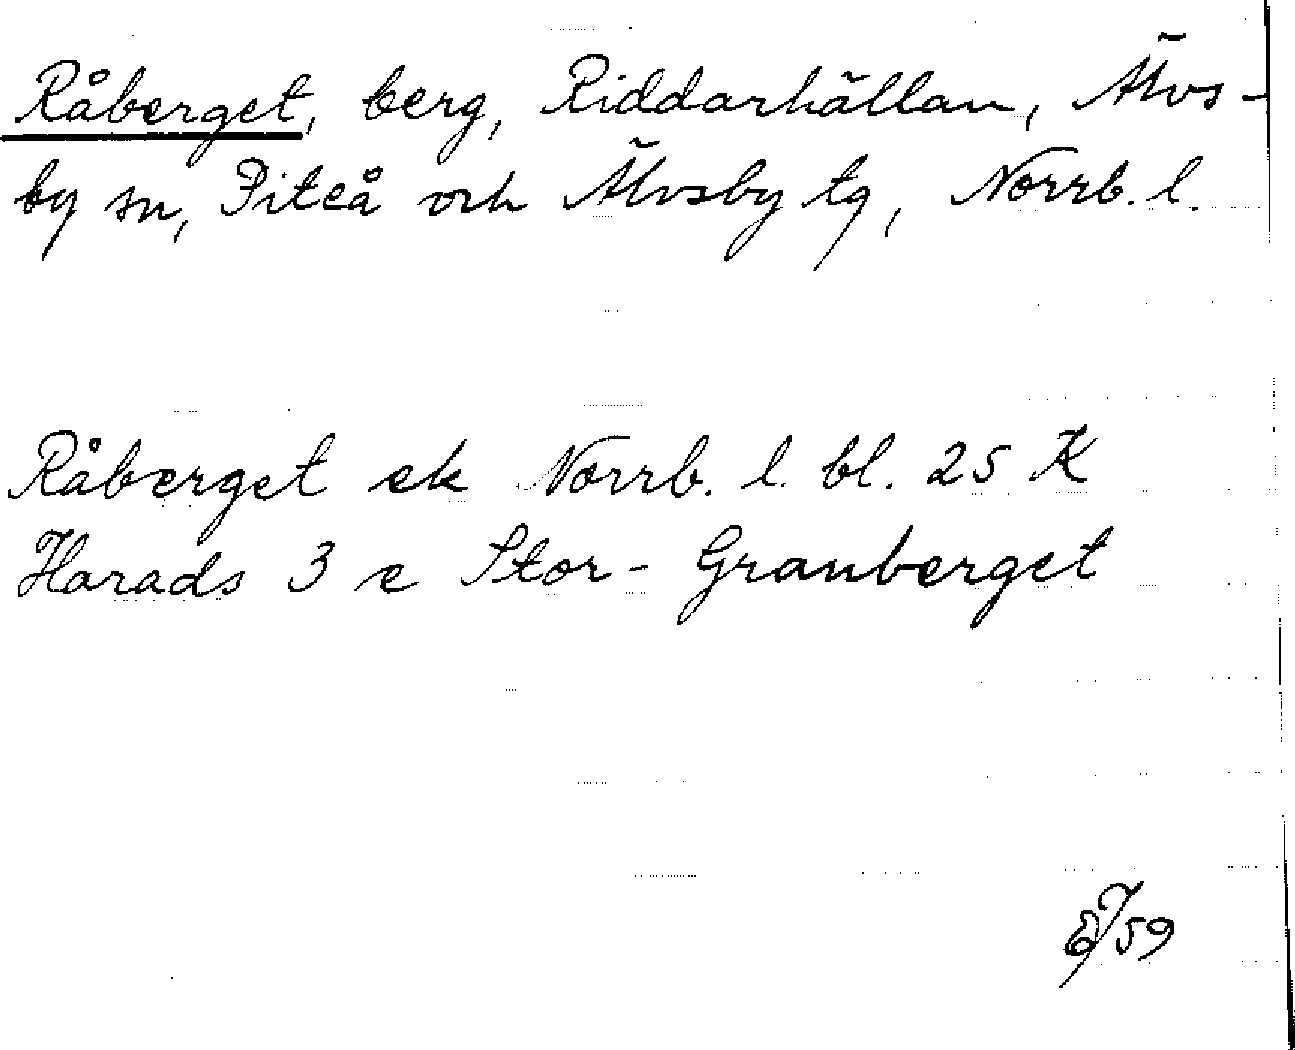 Råberget, berg, Riddarhällan, Älvs-
by sn, Piteå och Älvsby tg, Norrb. l.
Råberget ek Norrb. l. bl. 25 K
Harads 3 e Stor-Granberget